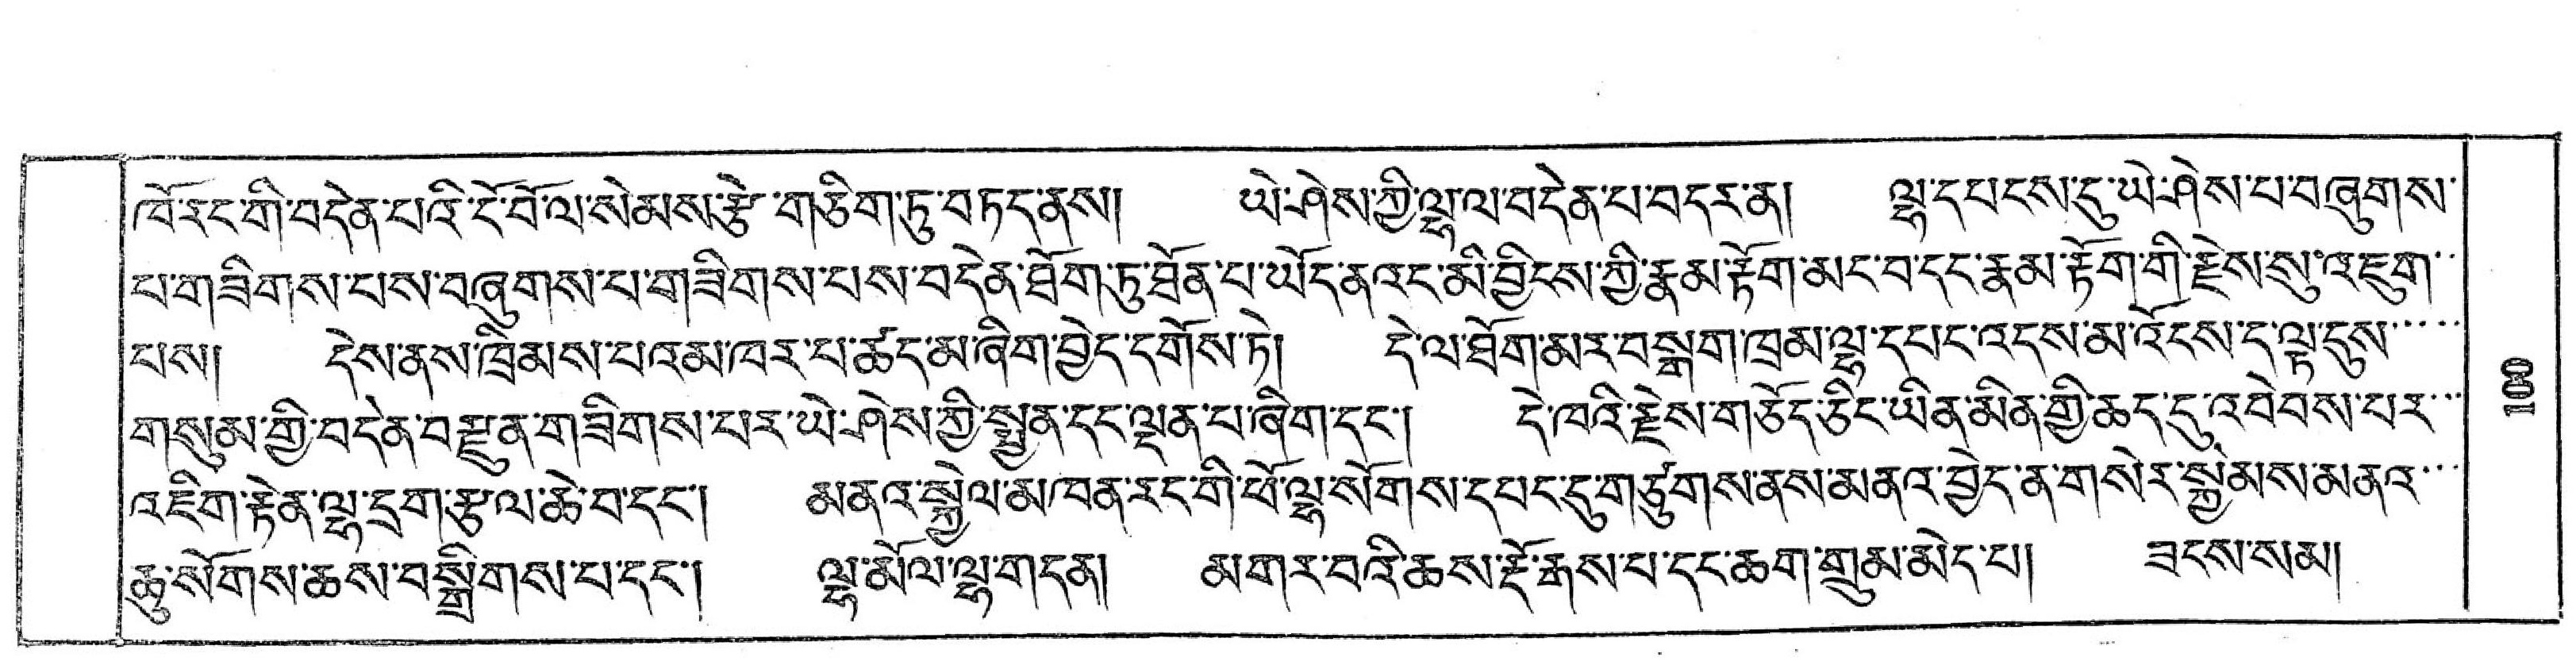 ཁོ་རང་གི་བདེན་པའི་ངོ་བོ་ལ་སེམས་རྩེ་གཅིག་ཏུ་བཏད་ནས། ཡེ་ཤེས་ཀྱི་ལྷ་ལ་བདེན་པ་བདར་ན། ལྷ་དཔངས་དུ་ཡེ་ཤེས་པ་བཞུགས་
པ་གཟིགས་པས་བཞུགས་པ་གཟིགས་པས་བདེན་ཐོག་ཏུ་ཐོན་པ་ཡོད་ནའང་མི་བྱིངས་ཀྱི་རྣམ་རྟོག་མང་བ་དང་རྣམ་རྟོག་གི་རྗེས་སུ་འཇུག་
པས། དེས་ནས་ཁྲིམས་པའམ་ཁར་པ་ཚད་མ་ཞིག་བྱེད་དགོས་ཏེ། དེ་ལ་ཐོག་མར་བསྒྲག་ཁྲམ་ལྷ་དཔང་འདས་མ་འོངས་ད་ལྟ་དུས་
གསུམ་གྱི་བདེན་བརྫུན་གཟིགས་པར་ཡེ་ཤེས་ཀྱི་སྤྱན་དང་ལྡན་པ་ཞིག་དང་། དེ་ཁའི་རྗེས་གཅོད་ཅིང་ཡིན་མིན་གྱི་ཆད་དུ་འབེབས་པར་
འཇིག་རྟེན་ལྷ་དྲག་རྩལ་ཆེ་བ་དང་། མནའ་སྐྱེལ་མཁན་རང་གི་ཕོ་ལྷ་སོགས་དཔང་དུ་གཙུགས་ནས་མནའ་བྱེད་ན་གསེར་སྐྱེམས་མནའ་
ཆུ་སོགས་ཆས་བསྒྲིགས་པ་དང་། ལྷ་མོལ་ལྷ་གདན། མགར་བའི་ཆས་རྡོ་རྒས་པ་དང་ཆག་གྲུམ་མེད་པ། ཟངས་སམ།